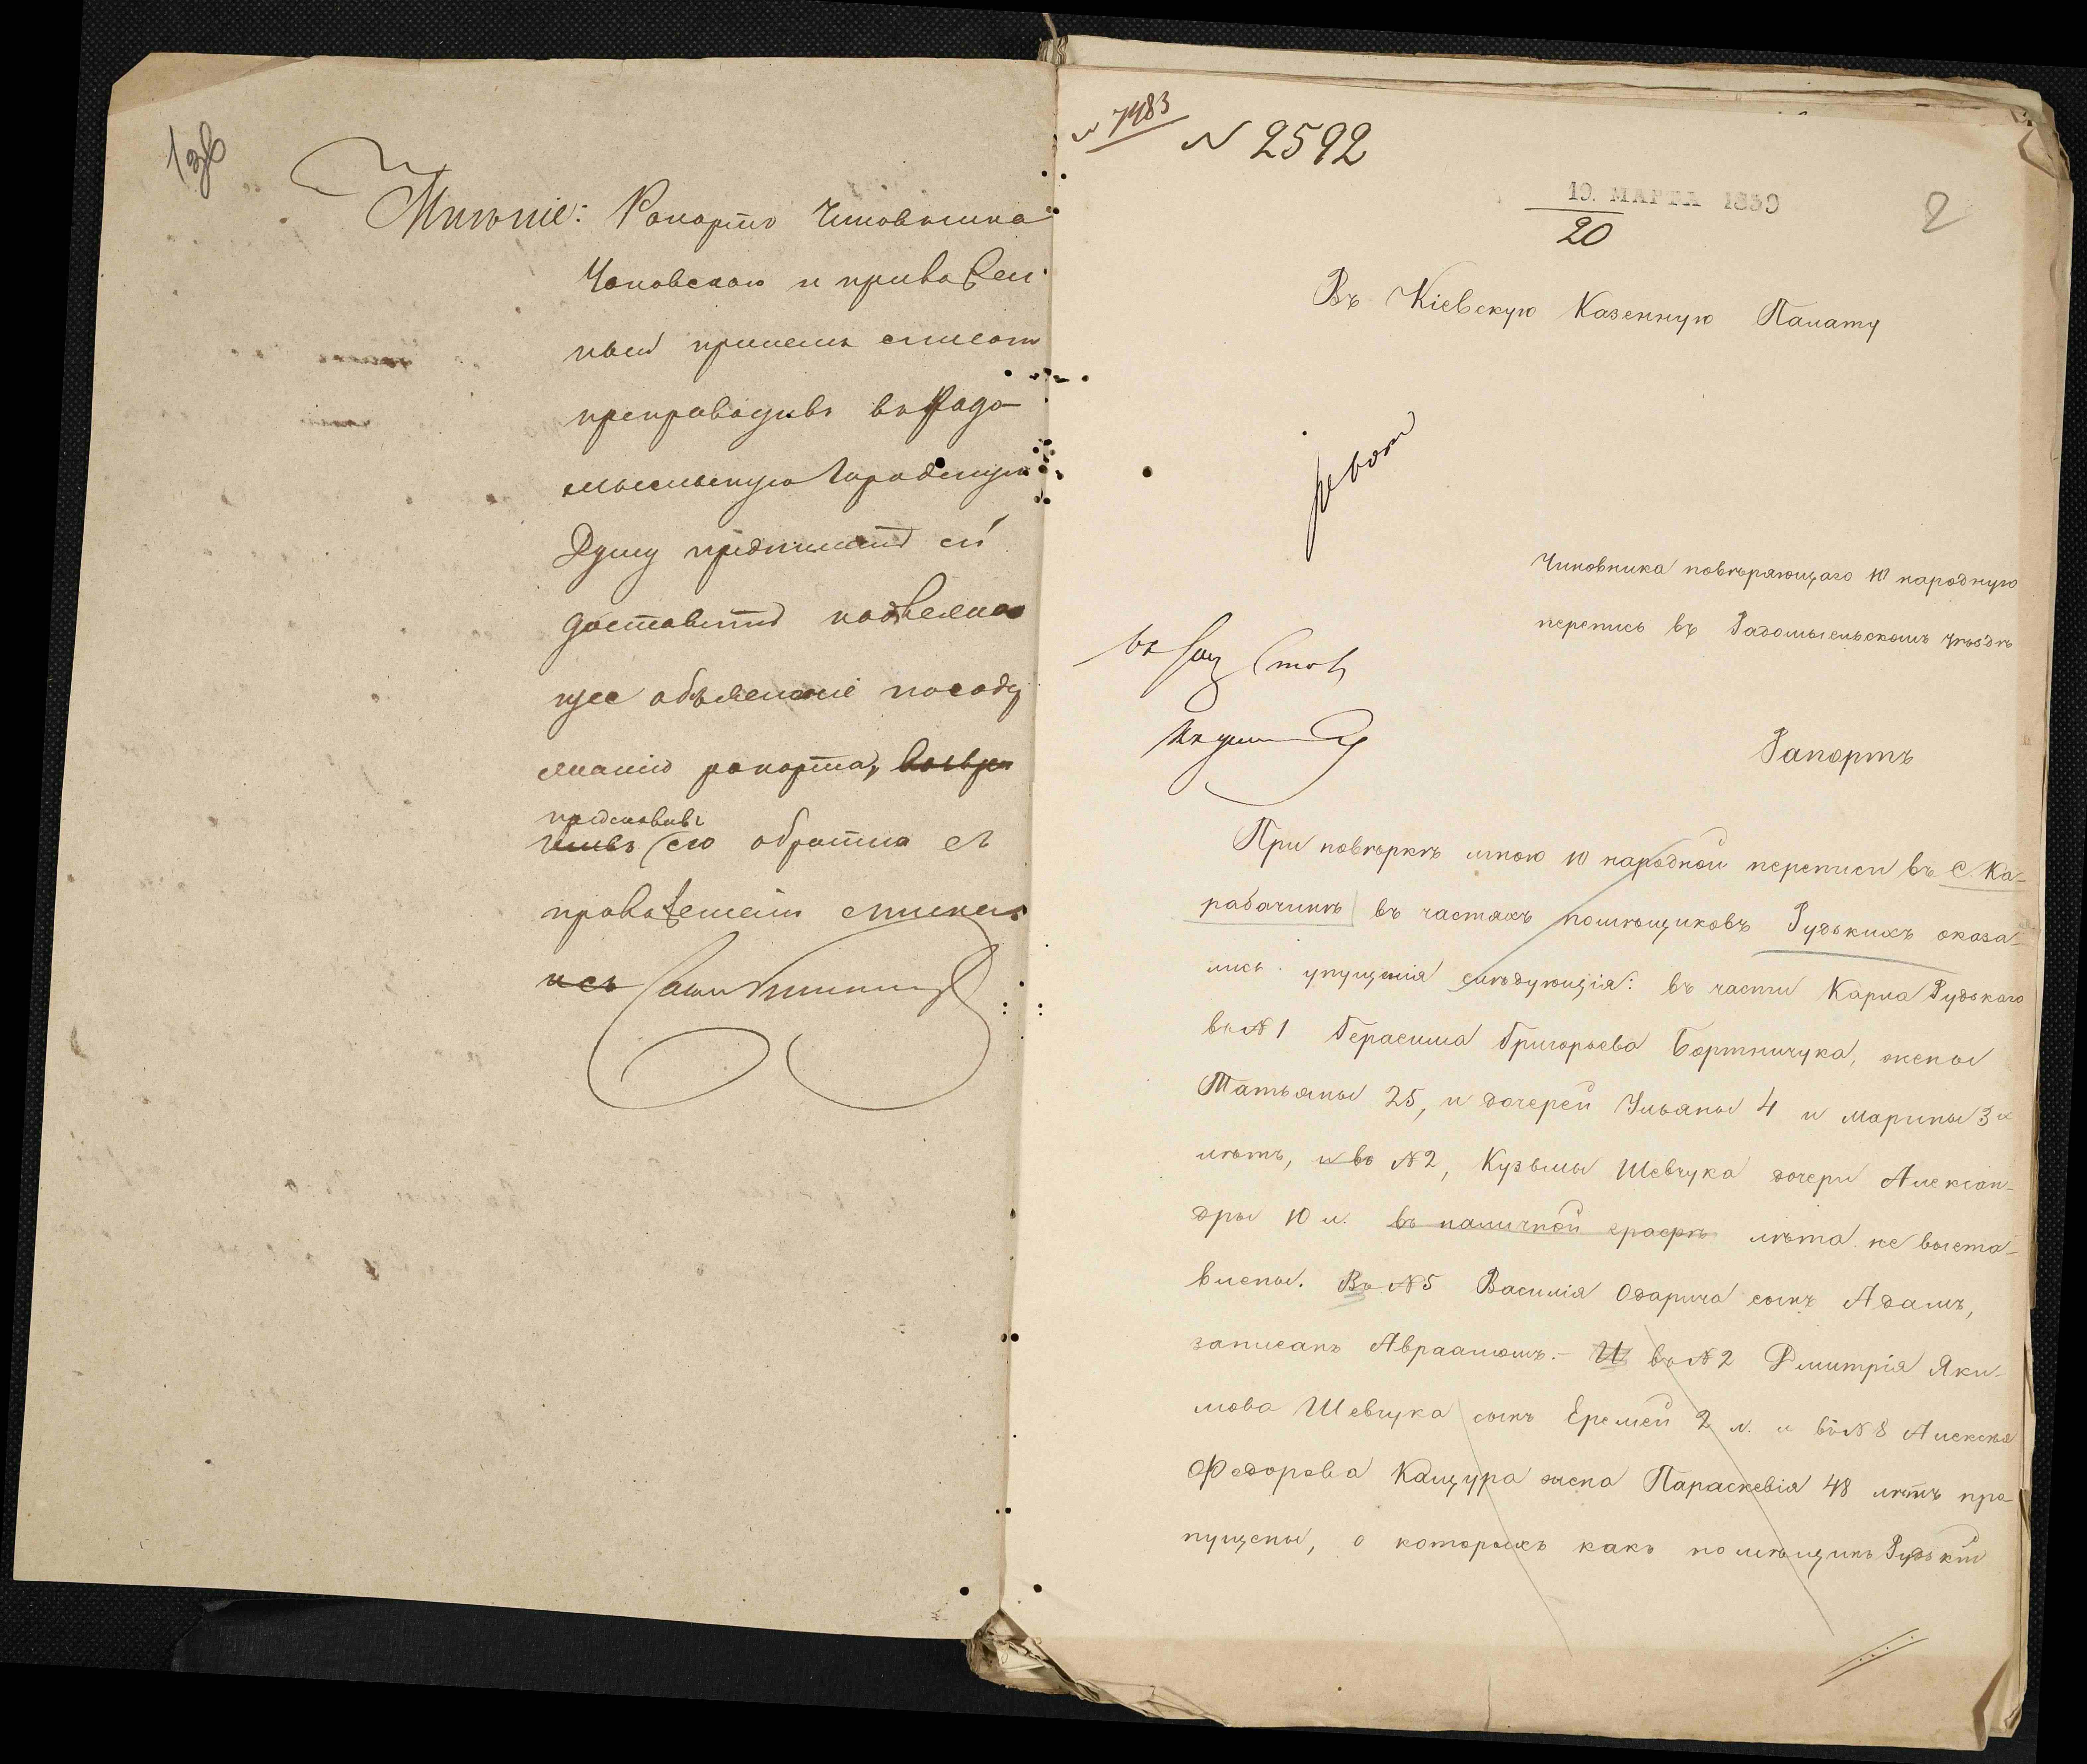 1зв
Мнѣніе: Рапортъ Чиновника
Чоповскаго и приведен
ный при немъ список
препроводивъ въ Радо
мысльскую Городскую
Думу предписать ей
доставить надлежа
щее объясненіе по соде
жанію рапорта,
представивъ его обратно съ
приложеніем списка
№ 7483
№ 2592
10. МАРТА 1859
20
2
Въ Кіевскую Казенную Палату
Чиновника повѣряющаго 10 народную
перепись въ Радомысльскомъ уѣздѣ
Рапортъ
При повѣркѣ мною 10 народной переписи въ с. Ка-
рабачинѣ въ частяхъ помѣщиковъ Рудькихъ оказа-
лись упущенія слѣдующія: въ части Карла Рудькаго
въ № 1 Герасима Григорьева Бортничука, жены
Татьяны 25, и дочерей Ульяны 4 и Марины 3х
лѣтъ, и въ № 2, Кузьмы Шевчука дочери Алексан-
дры 10 л. въ наличной графѣ лѣта не выста-
влены. Въ № 5 Василія Одарича сынъ Адамъ,
записанъ Авраамомъ. — И въ № 2 Дмитрія Яки-
мова Шевчука сынъ Еремей 2 л. и въ № 8 Алексѣя
Федорова Кащура жена Параскевія 48 лѣтъ про
пущены, о которыхъ какъ помѣщикъ Рудькій